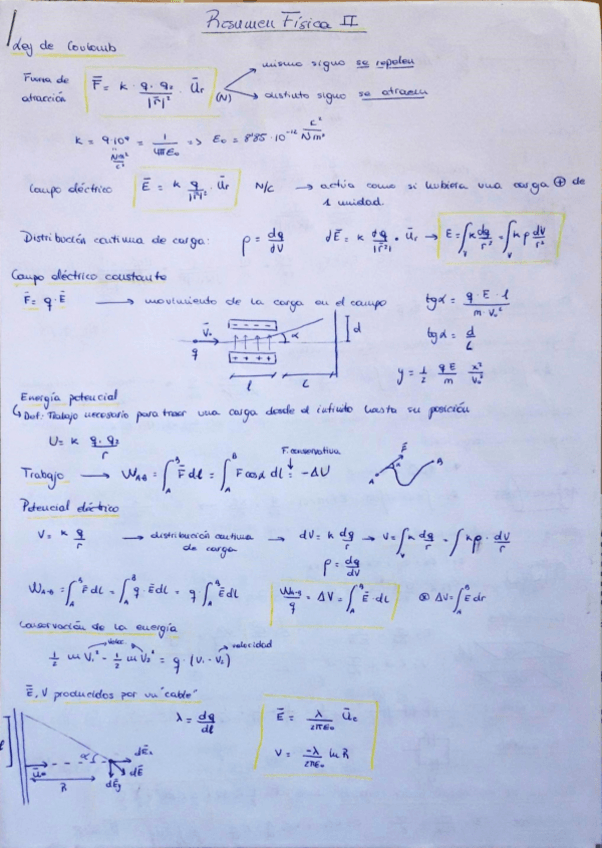 Resumen Física II
Ley de Coulomb
Fuerza de atracción F̄ = k · q · q₀ / |r̄|² · ūr (N)
mismo signo se repelen
distinto signo se atraen
k = 9·10⁹ Nm²/C² = 1/4πε₀ => ε₀ = 8'85 · 10⁻¹² C²/Nm²
Campo eléctrico Ē = k q/|r̄|² · ūr N/C → actúa como si hubiera una carga ⊕ de
1 unidad.
Distribución continua de carga: ρ = dq/dV dĒ = k dq/|r̄²| · ūr → E = ∫v k dq/r² = ∫v k ρ dV/r²
Campo eléctrico constante
F̄ = q · Ē → movimiento de la carga en el campo
tgα = q · E · l / m · V₀²
tgα = d/L
y = 1/2 qE/m x²/V₀²
V̄₀
q
- - - -
+ + + +
α
d
l
L
Energía potencial
↳ Def: Trabajo necesario para traer una carga desde el infinito hasta su posición
U = k q · q₂ / r
Trabajo → W_AB = ∫_A^B F̄ dl = ∫_A^B F cosα dl = -ΔU
F. conservativa
A
F̄
B
Potencial eléctrico
V = k q/r → distribución continua de carga → dV = k dq/r → V = ∫v k dq/r = ∫ kρ · dV/r
ρ = dq/dV
W_A-B = ∫_A^B F̄ dl = ∫_A^B q · Ē dl = q ∫_A^B Ē dl
W_A-B/q = ΔV = ∫_A^B Ē · dl
ΔV = ∫_A^B Ē dr
Conservación de la energía
1/2 m V₁² - 1/2 m V₂² = q · (V₁ - V₂)
velocidad
Ē, V producidos por un "cable"
λ = dq/dl
Ē = λ/2πε₀ ūe
V = -λ/2πε₀ ln R
l
α
R
dĒ
dĒy